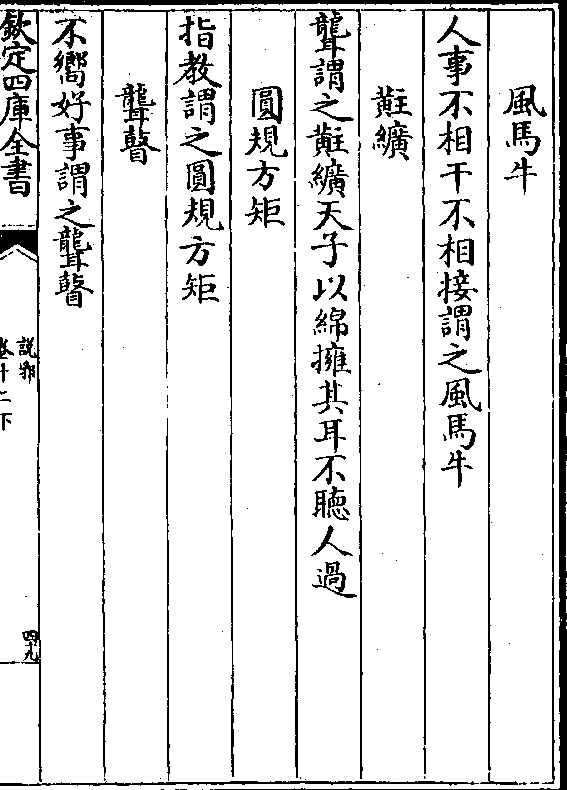 風馬牛
人事不相干不相接謂之風馬牛
黈纊
聾謂之黈纊天子以綿擁其耳不聽人過
圓規方矩
指教謂之圓規方矩
聾瞽
不嚮好事謂之聾瞽
欽定四庫全書
說郛
卷十二下
四十九